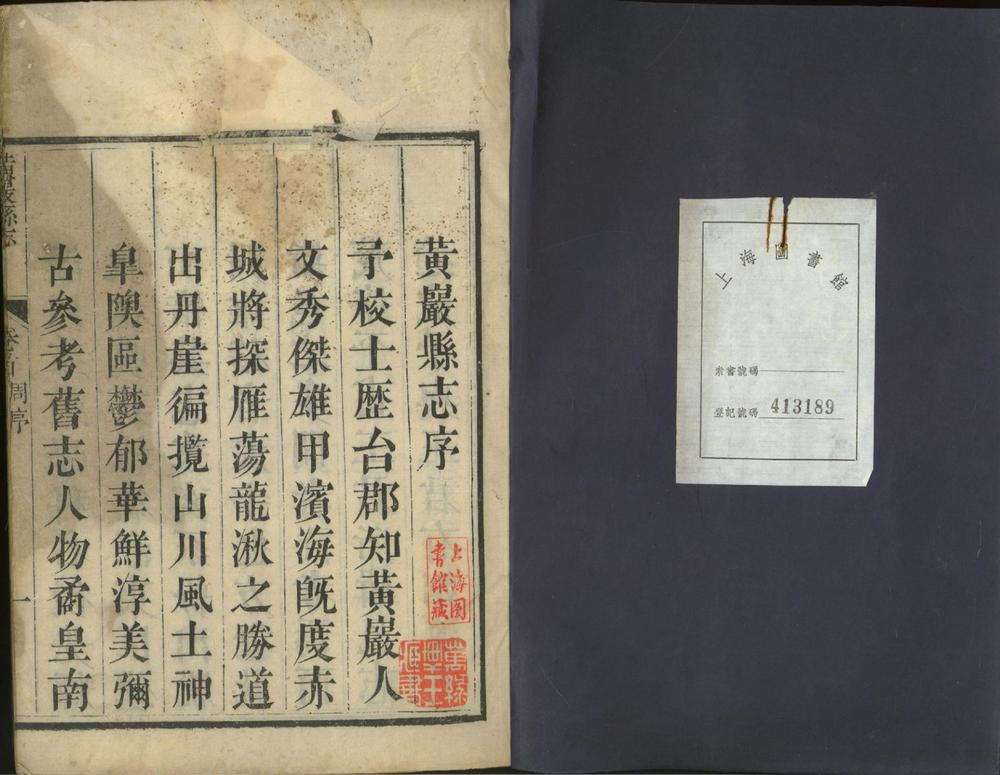 上海圖書館
索書號碼
登記號碼 413189
黃巖縣志序
予校士歷台郡知黃巖人
文秀傑雄甲濱海既度赤
城將探雁蕩龍湫之勝道
出丹崖徧攬山川風土神
皐隩區鬱郁華鮮淳美彌
古參考舊志人物矞皇南
黃巖縣志
周序
一
上海图
書館藏